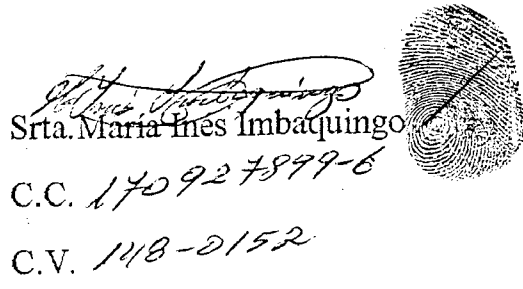 Srta. Maria Ines Imbaquingo
C.C. 170927899-6
C.V. 148-0152